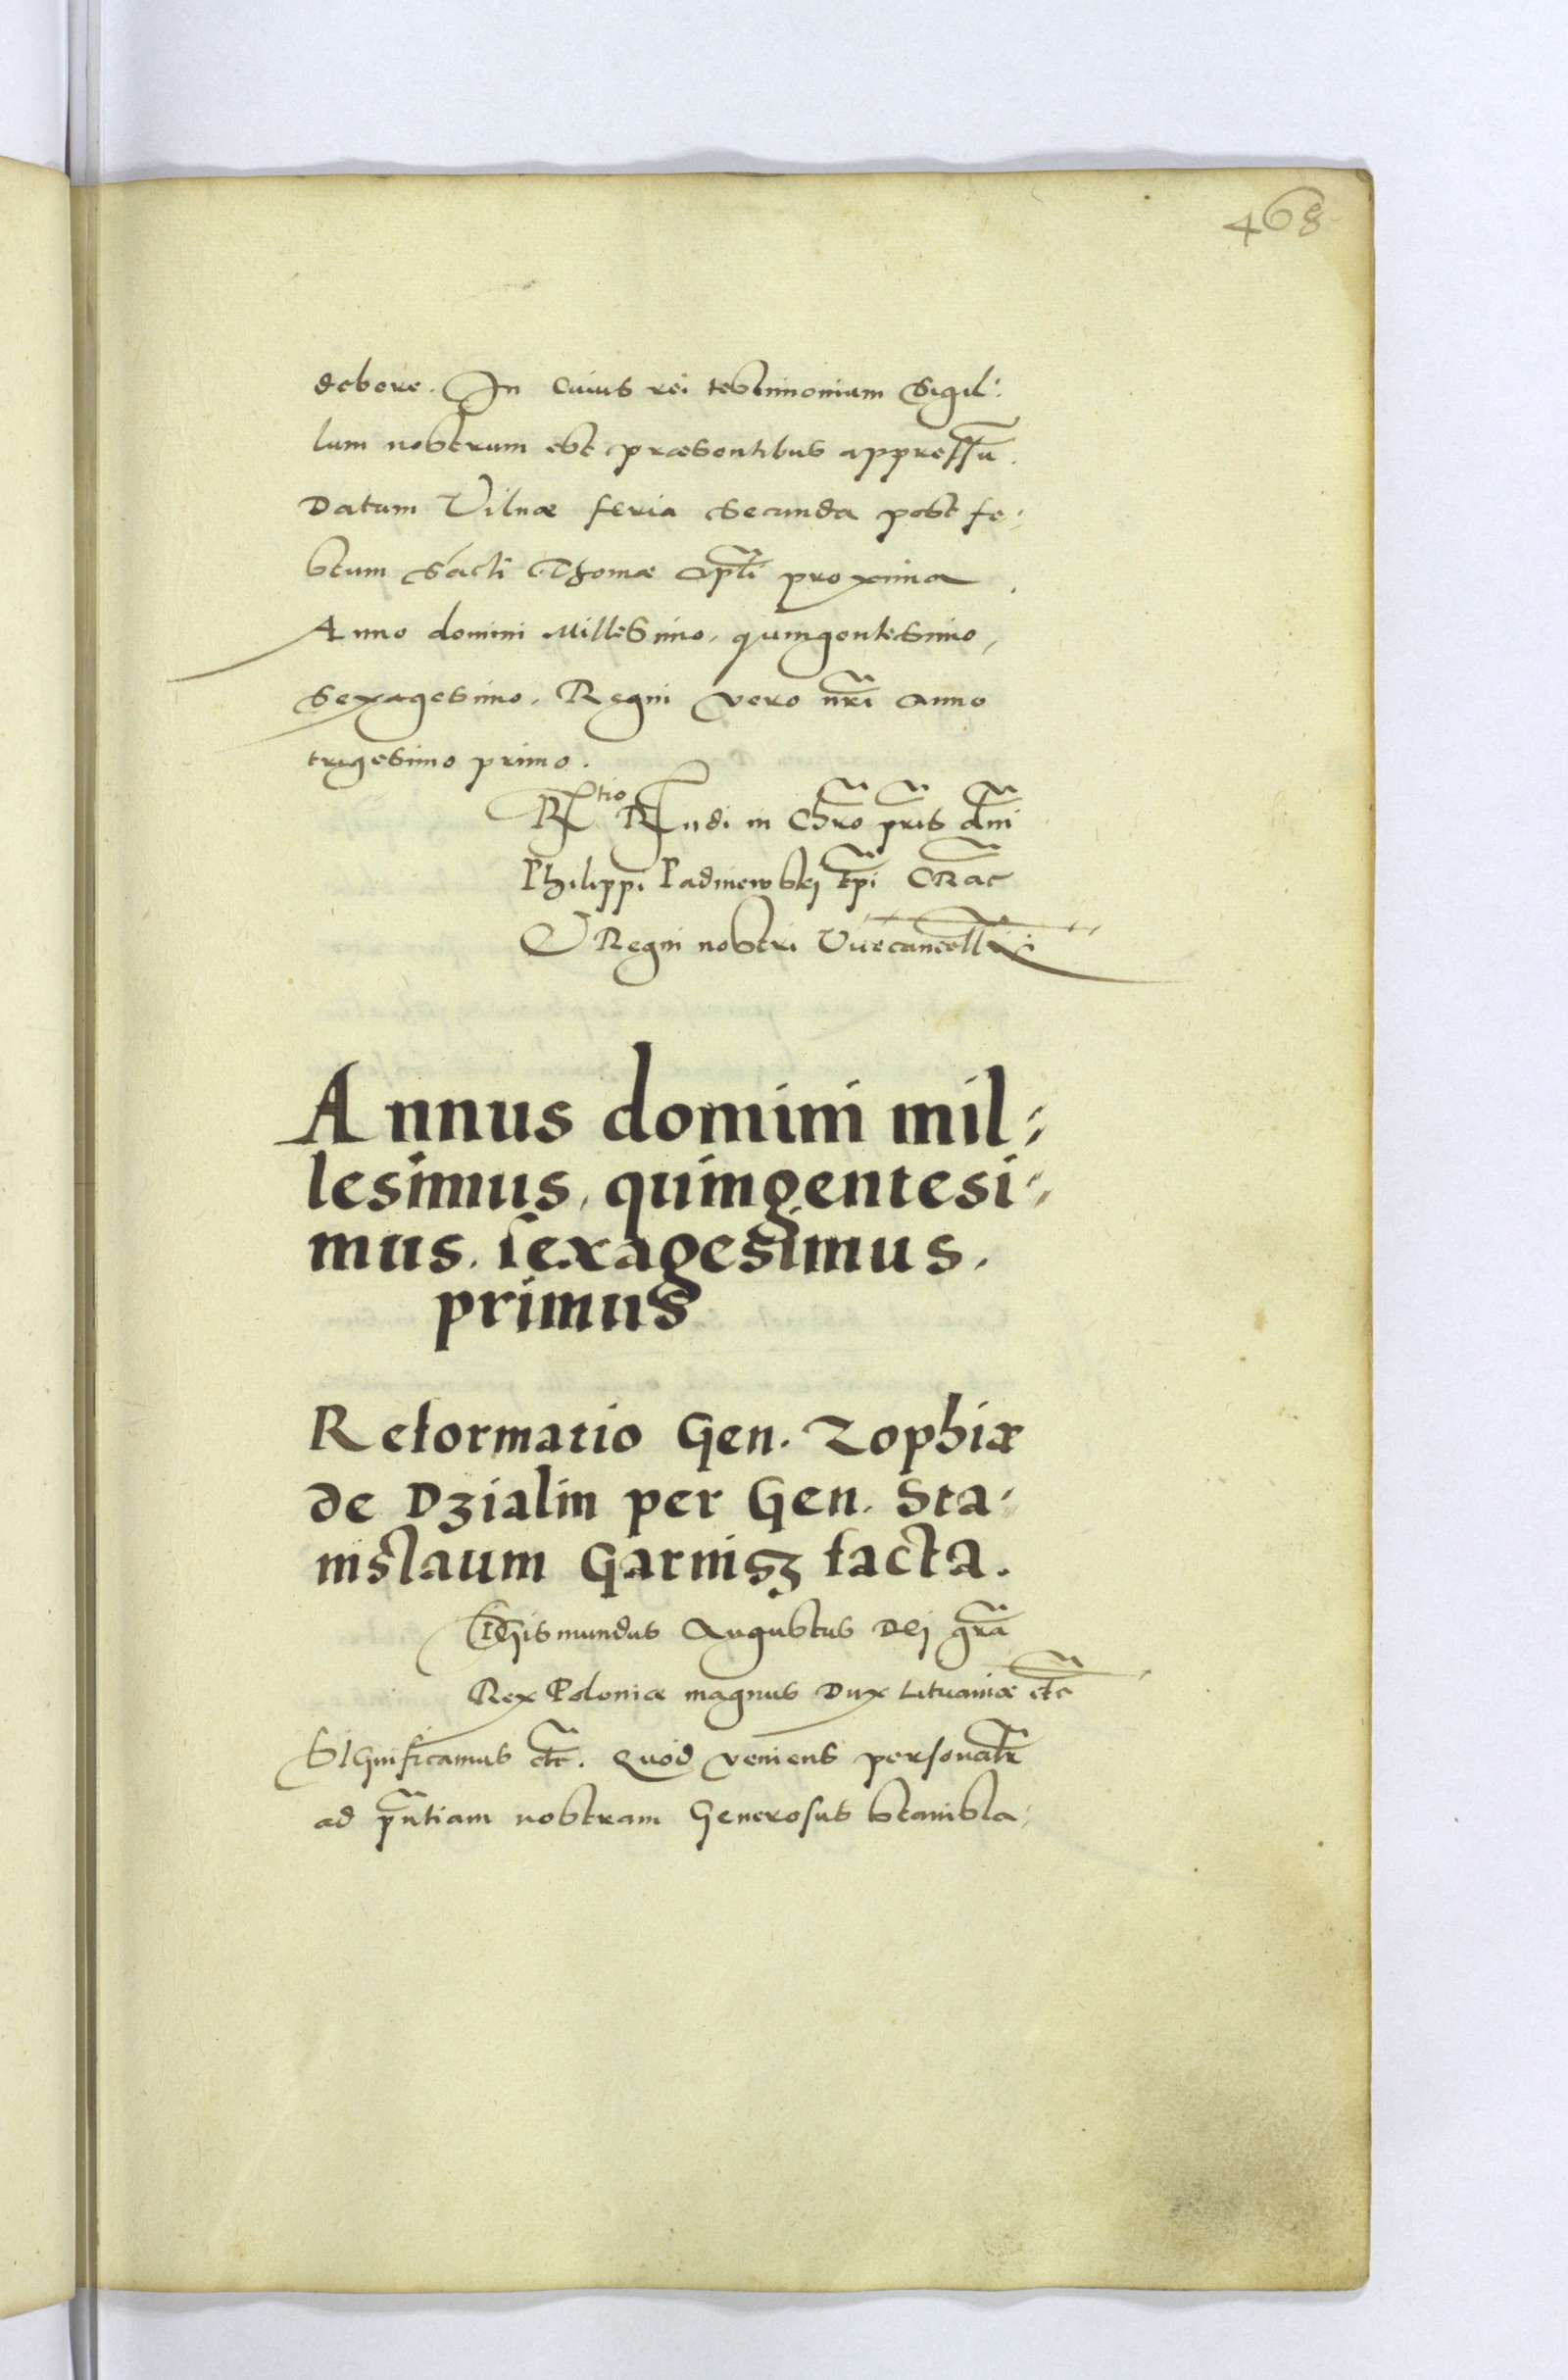 468
debere. In cuius rei testimonium Sigil:
lum nostrum est præsentibus appressū.
Datum Vilnæ feria secunda post fe:
stum Sācti Thomæ Apłi proxima.
Anno domini Millesimo, quingentesimo,
sexagesimo. Regni vero nr̃i anno
trigesimo primo.
Rtio Rndi in Chr̃o pr̃is dñi
Philippi Padniewskj Epĩ CRac̃
& Regni nostri Vicecancellȓ:
Annus domini mil:
lesimus, quingentesi:
mus, sexagesimus,
primus
Reformatio Gen. Zophiæ
de Dzialin per Gen. Sta:
nislaum Garnisz facta.
SIGismundus Augustus Dej gr̃a
Rex Poloniæ magnus Dux Lituaniæ etc̃
SIGnificamus etc̃. Quod veniens personalr̃
ad pñtiam nostram Generosus Stanisla: